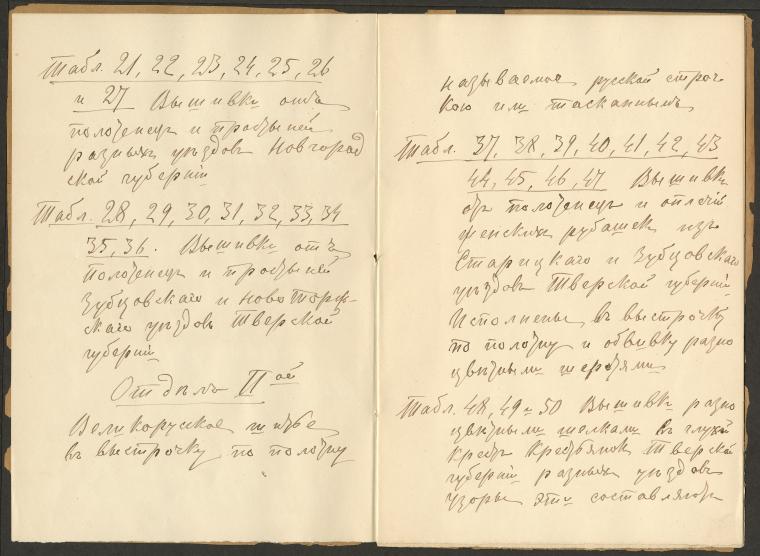 Табл. 21, 22, 23, 24, 25, 26
и 27 Вышивки отъ
полотенецъ и простыней
разныхъ уѣздовъ Новгород
ской губерніи
Табл. 28, 29, 30, 31, 32, 33, 34
35, 36. Вышивки отъ
полотенецъ и простыней
Зубцовскаго и Новоторж-
скаго уѣздовъ Тверской
губерніи
Отдѣлъ IIой
Великорусское шитье
въ выстрочку по полотну
называемое русской строч-
кою или тасканнымъ
Табл. 37, 38, 39, 40, 41, 42, 43
44, 45, 46, 47 Вышивки
съ полотенецъ и оплечій
женскихъ рубашекъ изъ
Старицкаго и Зубцовскаго
уѣздовъ Тверской губерніи
Исполнены въ выстрочку
по полотну и обвивку разно
цвѣтными шерстями
Табл. 48, 49 и 50 Вышивки разно
цвѣтными шелками въ глухой
крестъ крестьянокъ Тверской
губерніи разныхъ уѣздовъ
узоры эти составляютъ